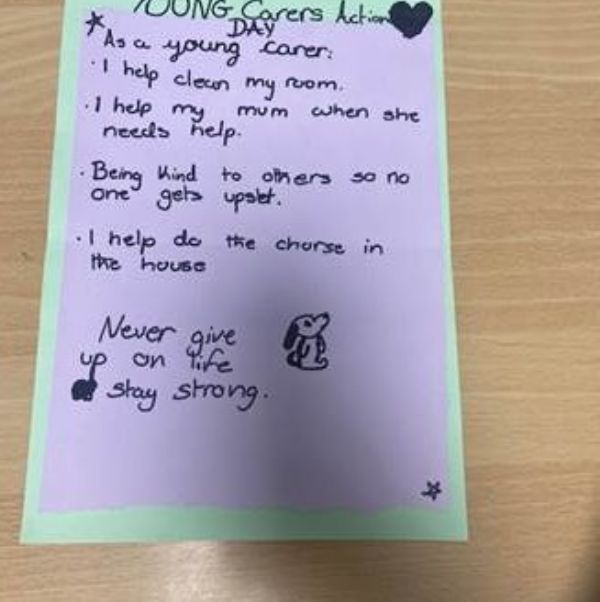 YOUNG Carers Action
DAY
As a young carer:
· I help clean my room.
· I help my mum when she
needs help.
· Being kind to others so no
one gets upset.
· I help do the chorse in
the house
Never give
up on life
stay strong.